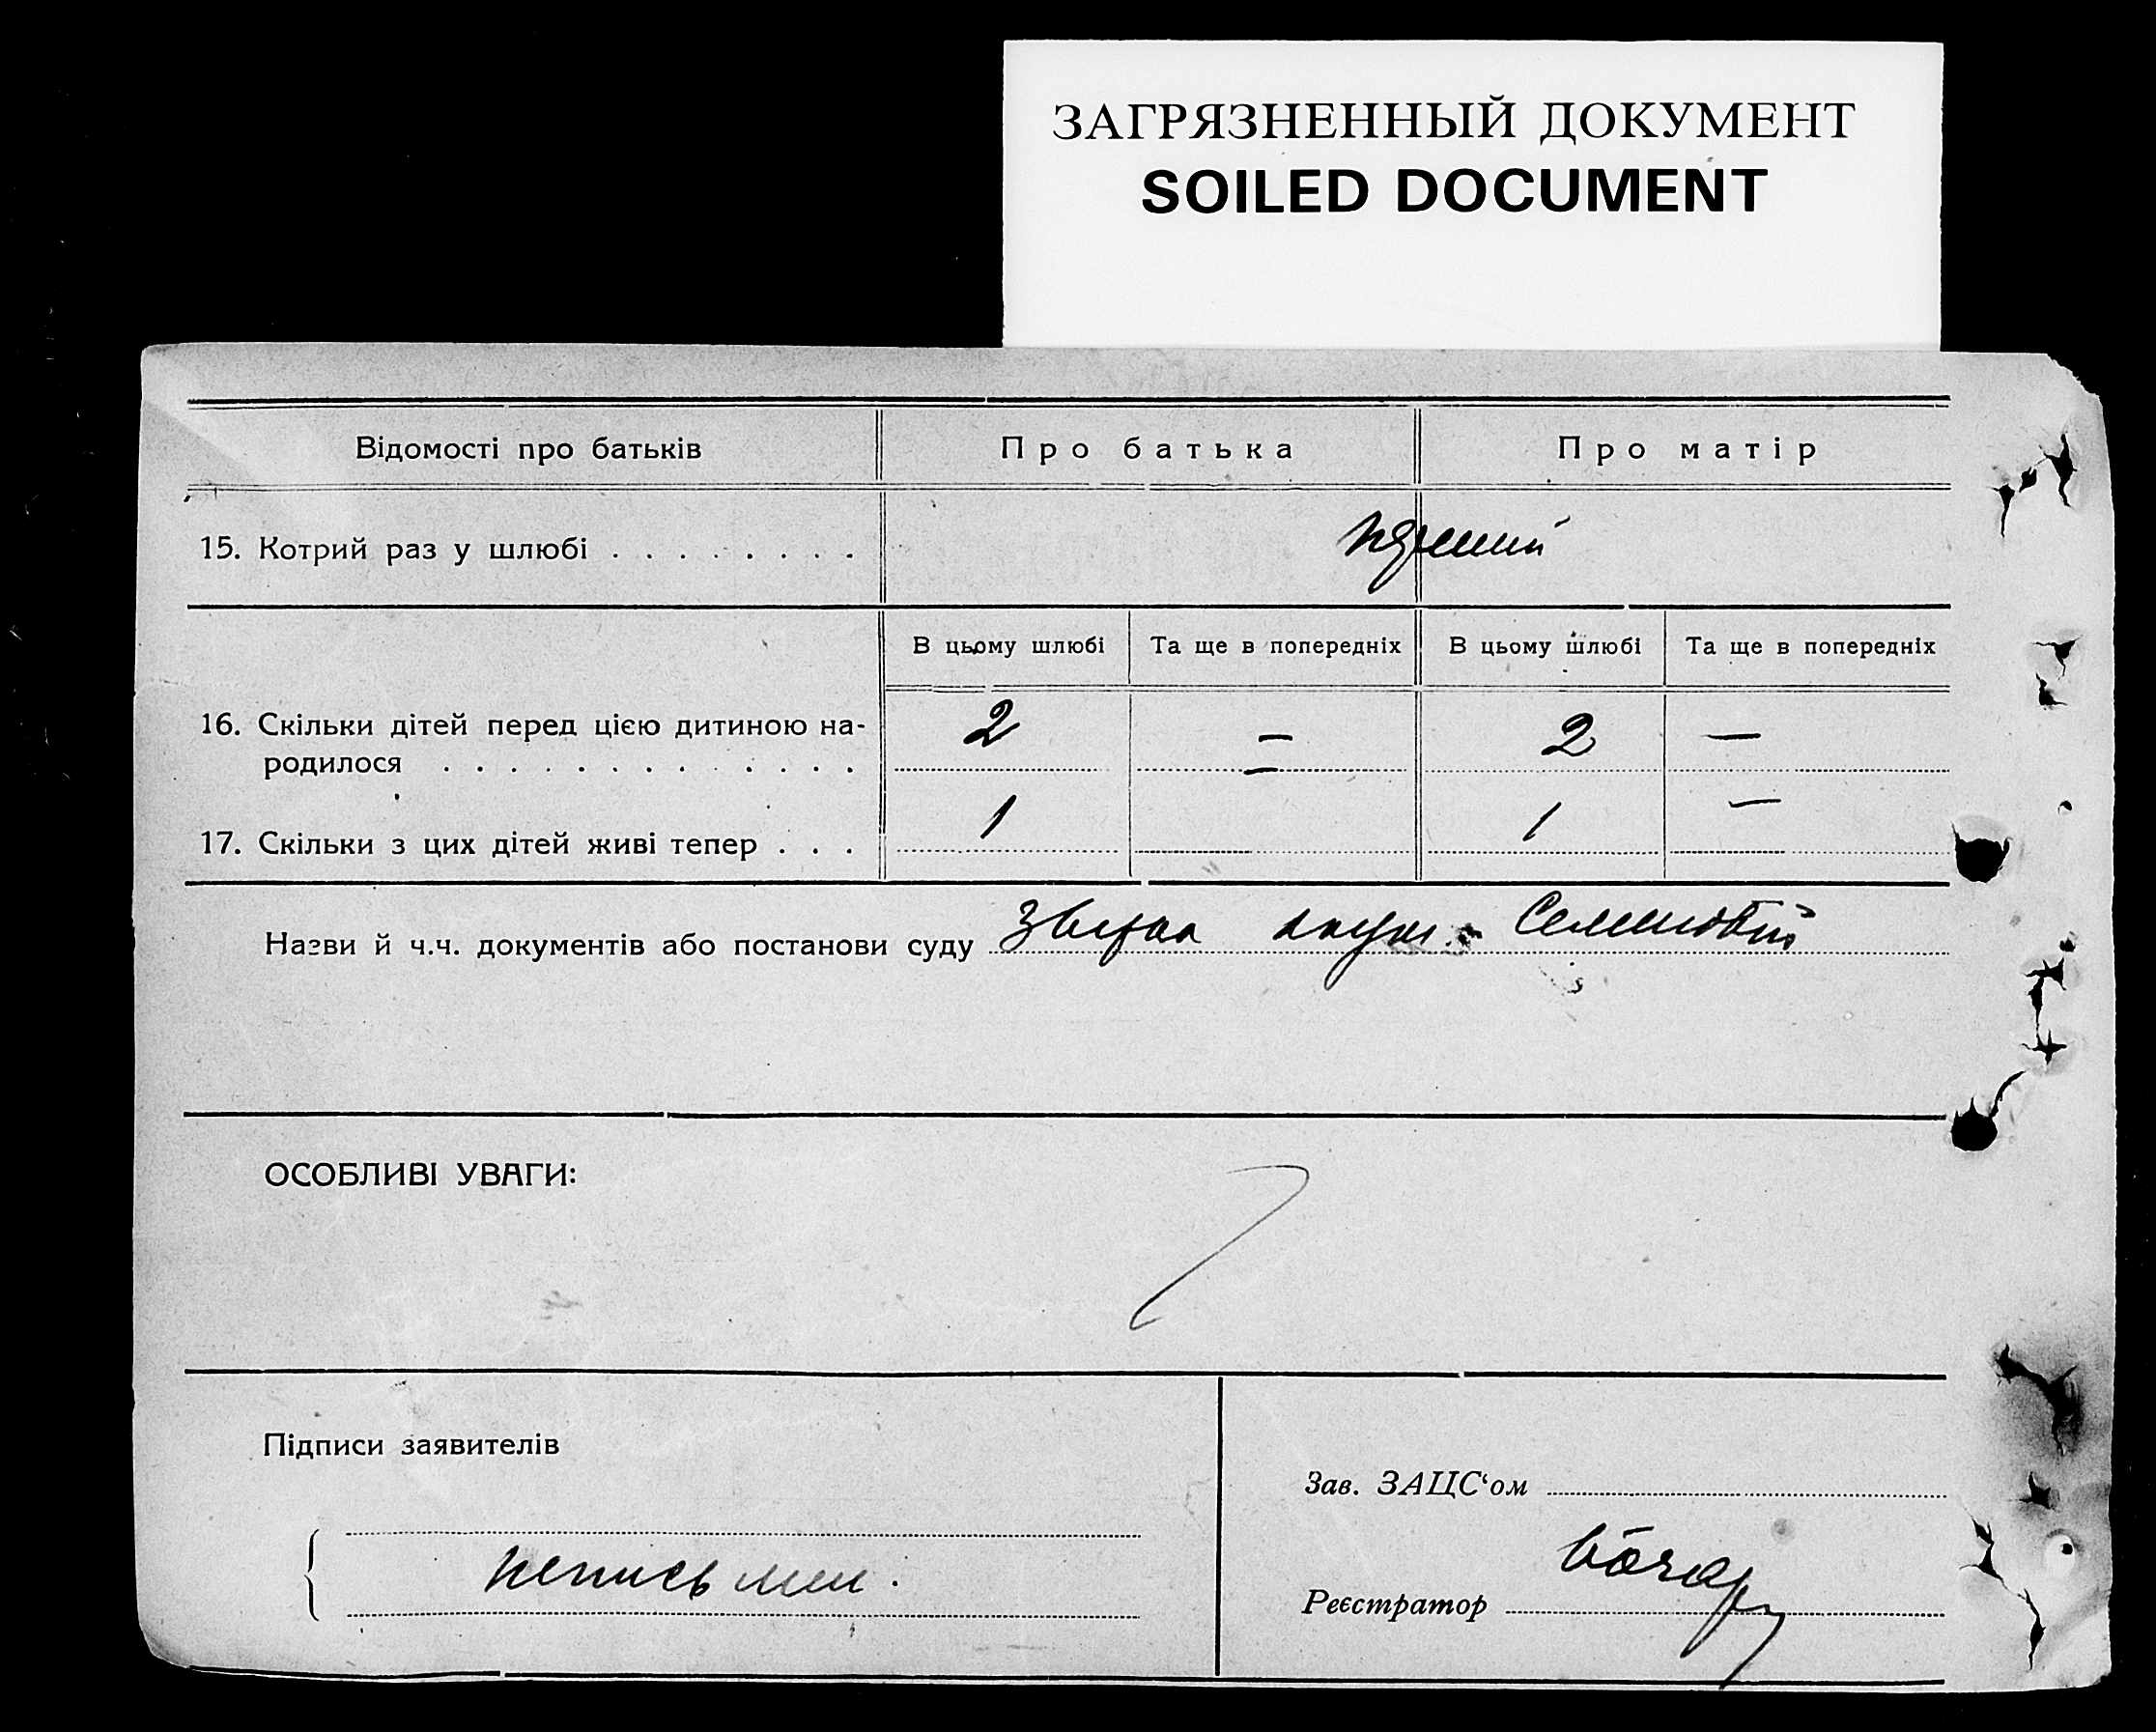 ЗАГРЯЗНЕННЫЙ ДОКУМЕНТ
SOILED DOCUMENT
Відомості про батьків Про батька Про матір
15. Котрий раз у шлюбі . . . . . . . .
В цьому шлюбі Та ще в попередніх В цьому шлюбі Та ще в попередніх
16. Скільки дітей перед цією дитиною на- 2 — 2 —
родилося . . . . . . . . . . . . . —
17. Скільки з цих дітей живі тепер . . . 1 1 —
Назви й ч.ч. документів або постанови суду
ОСОБЛИВІ УВАГИ:
Підписи заявителів
Зав. ЗАЦС'ом
неписьмен.
Реєстратор